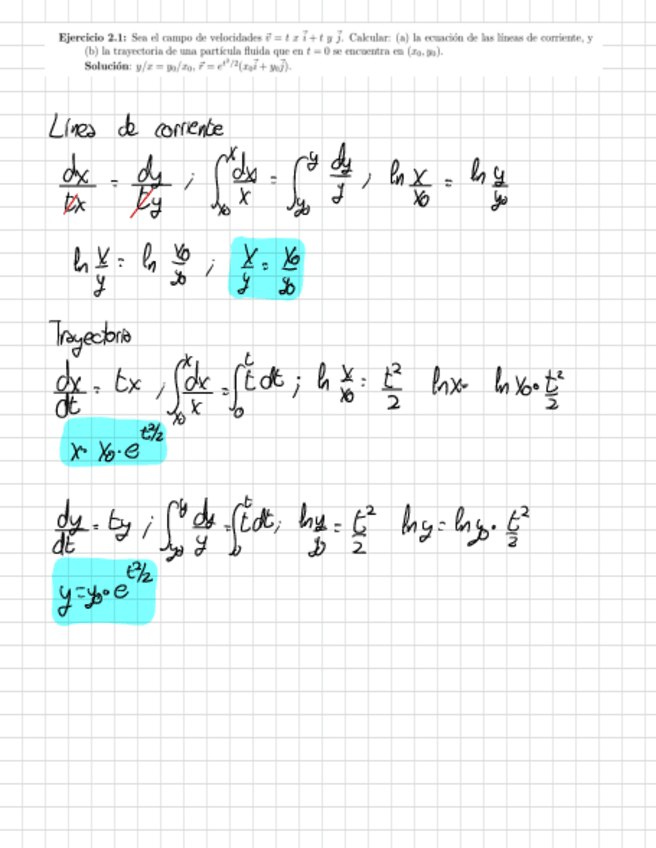 Ejercicio 2.1: Sea el campo de velocidades v⃗ = t x i⃗ + t y j⃗. Calcular: (a) la ecuación de las líneas de corriente, y
(b) la trayectoria de una partícula fluida que en t = 0 se encuentra en (x₀, y₀).
Solución: y/x = y₀/x₀, r⃗ = e^(t²/2)(x₀i⃗ + y₀j⃗).
Línea de corriente
dx/tx = dy/ty ; ∫_x₀^x dx/x = ∫_y₀^y dy/y ; ln x/x₀ = ln y/y₀
ln x/y = ln x₀/y₀ ; x/y = x₀/y₀
Trayectoria
dx/dt = tx ; ∫_x₀^x dx/x = ∫_0^t t dt ; ln x/x₀ = t²/2 lnx = ln x₀ · t²/2
x = x₀ · e^(t²/2)
dy/dt = ty ; ∫_y₀^y dy/y = ∫_0^t t dt ; ln y/y₀ = t²/2 ln y = ln y₀ · t²/2
y = y₀ · e^(t²/2)